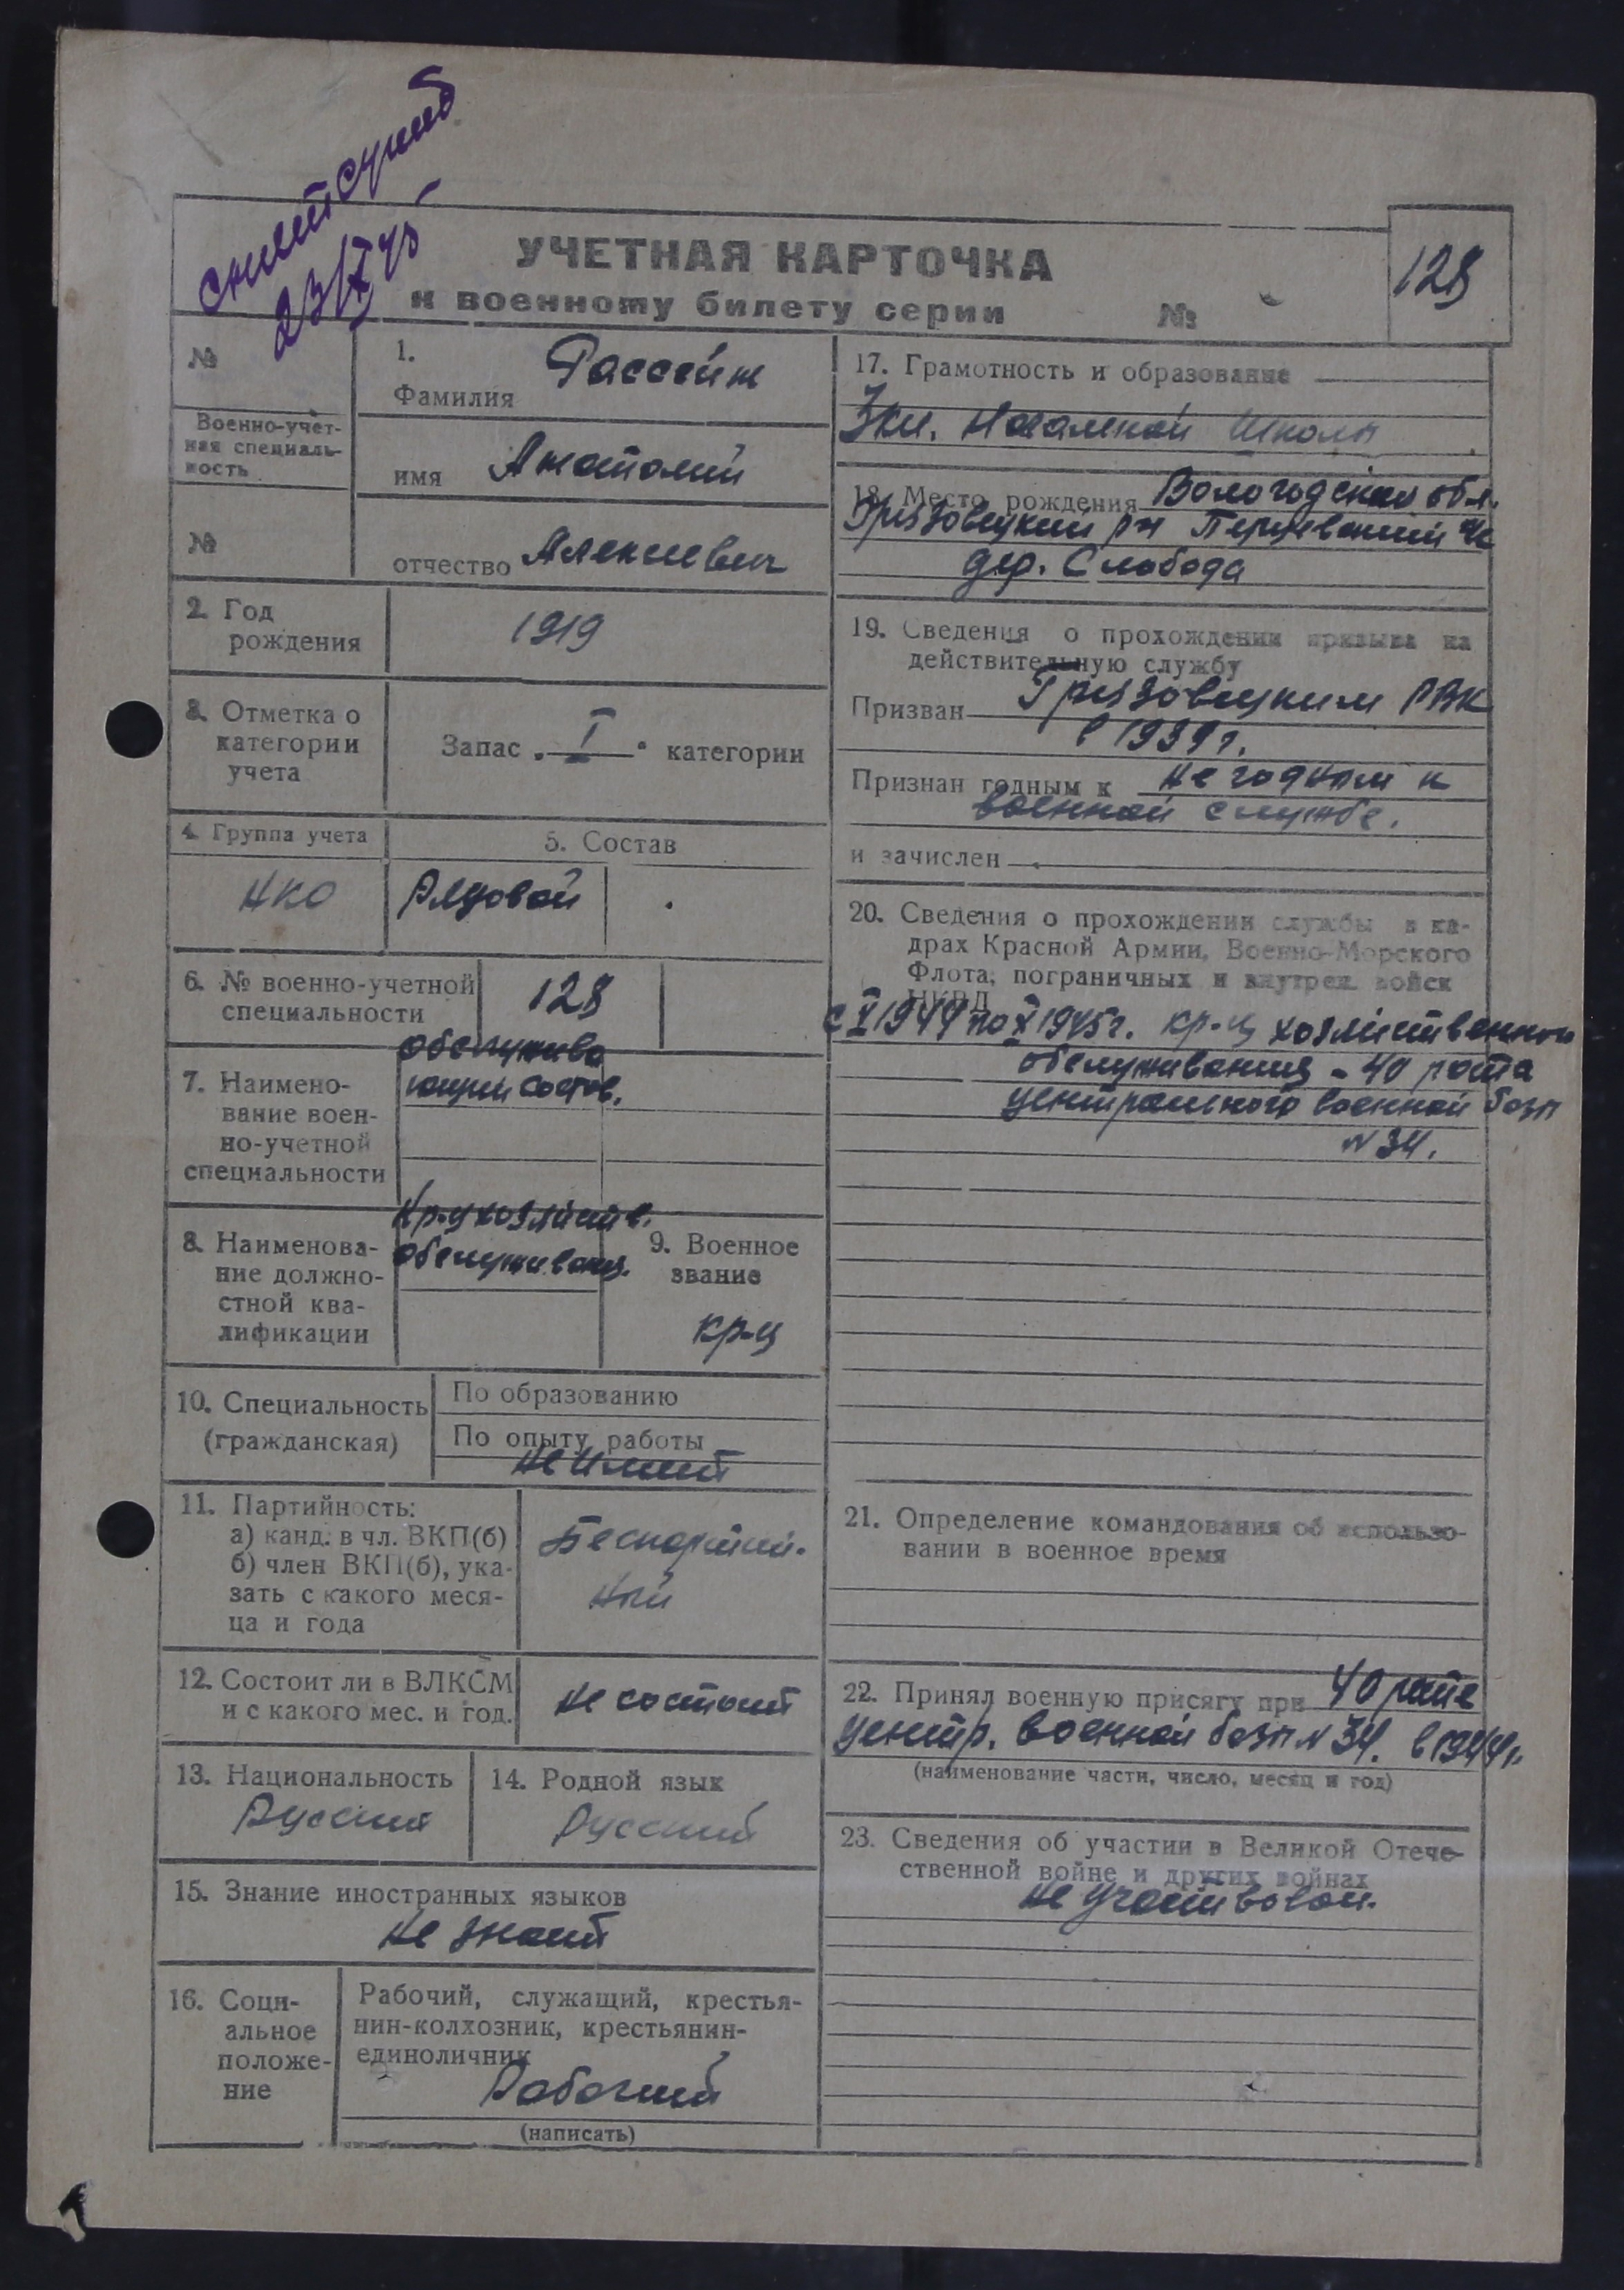 снят с учета
23/X 45
УЧЕТНАЯ КАРТОЧКА
к военному билету серии №
128
№
Военно-учет-
ная специаль-
ность
№
1.
Фамилия
имя Анатолий
отчество Алексеевич
2. Год
рождения
1919
3. Отметка о
категории
учета
Запас „ I " категории
4. Группа учета
5. Состав
НКО
Рядовой
6. № военно-учетной
специальности
128
7. Наимено-
вание воен-
но-учетной
специальности
обслужива
ющий состав.
8. Наименова-
ние должно-
стной ква-
лификации
Кр-ц хозяйств.
обслуживания.
9. Военное
звание
кр-ц
10. Специальность
(гражданская)
По образованию
По опыту работы
не имеет
11. Партийность:
а) канд. в чл. ВКП(б)
б) член ВКП(б), ука-
зать с какого меся-
ца и года
Беспартий-
ный
12. Состоит ли в ВЛКСМ
и с какого мес. и год.
не состоит
13. Национальность
Русский
14. Родной язык
Русский
15. Знание иностранных языков
не знает
16. Соци-
альное
положе-
ние
Рабочий, служащий, крестья-
нин-колхозник, крестьянин-
единоличник
Рабочий
(написать)
17. Грамотность и образование
3 кл. начальной школы
18. Место рождения Вологодская обл.
Грязовецкий р-н с/с
дер. Слобода
19. Сведения о прохождении призыва на
действительную службу
Призван Грязовецким РВК
в 1939 г.
Признан годным к не годным к
военной службе.
и зачислен
20. Сведения о прохождении службы в ка-
драх Красной Армии, Военно-Морского
Флота, пограничных и внутрен. войск
НКВД
с V 1944 по X 1945 г. кр-ц хозяйственного
обслуживания - 40 рота
центрального военной базы
№ 34.
21. Определение командования об использо-
вании в военное время
22. Принял военную присягу при 40 роте
центр. военной базы № 34. в 1944 г.
(наименование части, число, месяц и год)
23. Сведения об участии в Великой Отече-
ственной войне и других войнах
не участвовал.